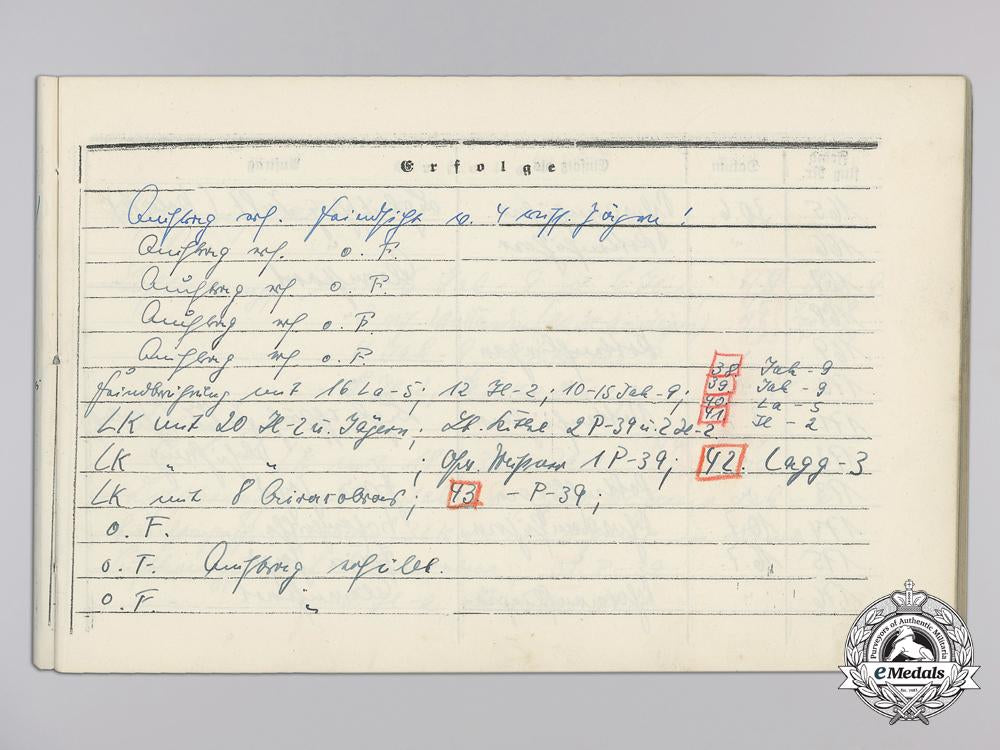 Erfolge
Auftrag erf. Feindsicht m. 4 russ. Jägern!
Auftrag erf. o. F.
Auftrag erf. o. F.
Auftrag erf. o. F.
Auftrag erf. o. F.
Feindberührung mit 16 La-5; 12 Il-2; 10-15 Jak-9; 38 Jak-9
39 Jak-9
40 La-5
41 Il-2
LK mit 20 Il-2 u. Jägern; Lt. 2 P-39 u. 2 Il-2
LK " " ; 1 P-39; 42. Lagg-3
LK mit 8 Airacobras; 43. - P-39;
o. F.
o. F. Auftrag erfüllt.
o. F. "
Purveyors of Authentic Militaria
eMedals